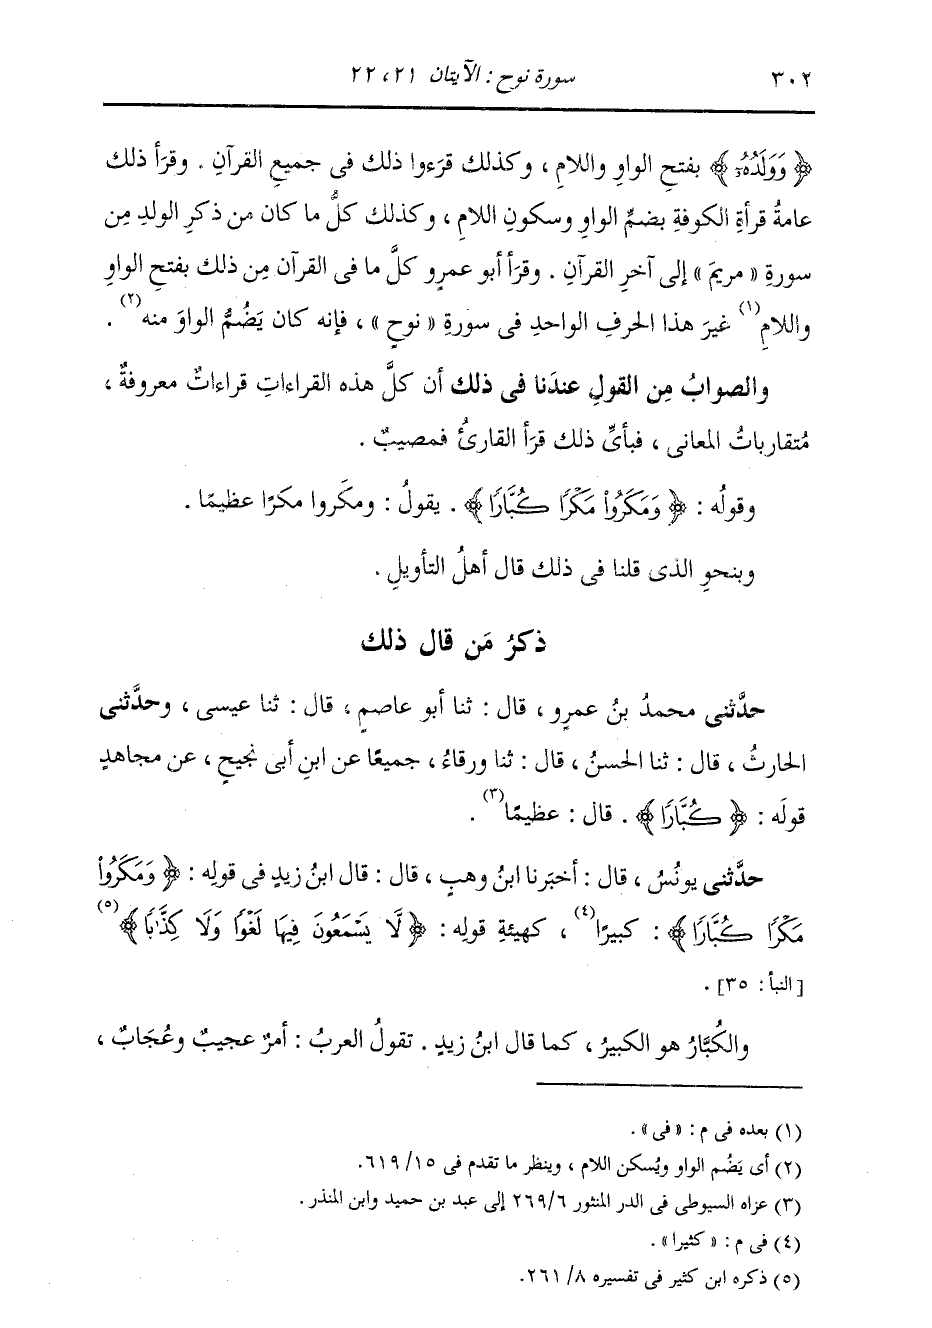 ٣٠٢ سورة نوح : الآيتان ٢١، ٢٢
﴿ وَوَلَدُهُۥٓ ﴾ بفتحِ الواوِ واللامِ ، وكذلك قرَءوا ذلك فى جميعِ القرآنِ . وقرَأ ذلك
عامةُ قرأةِ الكوفةِ بضمِّ الواوِ وسكونِ اللامِ ، وكذلك كلُّ ما كان من ذكرِ الولدِ مِن
سورةِ « مريمَ » إلى آخرِ القرآنِ . وقرَأ أبو عمرٍو كلَّ ما فى القرآن مِن ذلك بفتحِ الواوِ
واللامِ(١) غيرَ هذا الحرفِ الواحدِ فى سورةِ « نوحٍ » ، فإنه كان يَضُمُّ الواوَ منه(٢) .
والصوابُ مِن القولِ عندَنا فى ذلك أن كلَّ هذه القراءاتِ قراءاتٌ معروفةٌ ،
مُتقارباتُ المعانى ، فبأىِّ ذلك قرَأ القارئُ فمصيبٌ .
وقولُه : ﴿ وَمَكَرُوا۟ مَكْرًا كُبَّارًا ﴾ . يقولُ : ومكَروا مكرًا عظيمًا .
وبنحوِ الذى قلنا فى ذلك قال أهلُ التأويلِ .
ذكرُ مَن قال ذلك
حدَّثنى محمدُ بنُ عمرٍو ، قال : ثنا أبو عاصمٍ ، قال : ثنا عيسى ، وحدَّثنى
الحارثُ ، قال : ثنا الحسنُ ، قال : ثنا ورقاءُ ، جميعًا عن ابنِ أبى نجيحٍ ، عن مجاهدٍ
قولَه : ﴿ كُبَّارًا ﴾ . قال : عظيمًا(٣) .
حدَّثنى يونُسُ ، قال : أخبَرنا ابنُ وهبٍ ، قال : قال ابنُ زيدٍ فى قولِه : ﴿ وَمَكَرُوا۟
مَكْرًا كُبَّارًا ﴾ : كبيرًا(٤) ، كهيئةِ قولِه : ﴿ لَّا يَسْمَعُونَ فِيهَا لَغْوًا وَلَا كِذَّٰبًا ﴾(٥)
[ النبأ : ٣٥] .
والكُبَّارُ هو الكبيرُ ، كما قال ابنُ زيدٍ . تقولُ العربُ : أمرٌ عجيبٌ وعُجَابٌ ،
(١) بعده فى م : « فى » .
(٢) أى يَضُم الواو ويُسكن اللام ، وينظر ما تقدم فى ١٥/ ٦١٩.
(٣) عزاه السيوطى فى الدر المنثور ٢٦٩/٦ إلى عبد بن حميد وابن المنذر .
(٤) فى م : « كثيرا » .
(٥) ذكره ابن كثير فى تفسيره ٨/ ٢٦١.